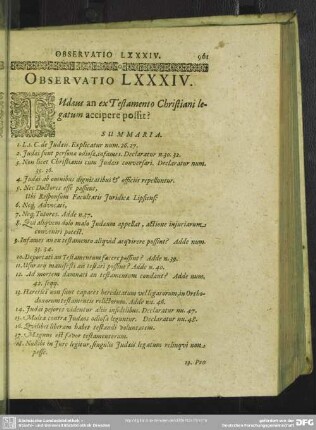 OBSERVATIO LXXXIV. 961
OBSERVATIO LXXXIV.
IUdæus an ex Testamento Christiani le-
gatum accipere possit?
SUMMARIA.
1. l. 1. C. de Judæis. Explicatur num. 26. 27.
2. Judæi sunt personæ odiosæ, infames. Declaratur n. 30. 32.
3. Non licet Christianis cum Judæis conversari. Declaratur num.
35. 36.
4. Judæi ab omnibus dignitatibus & officiis repelluntur.
5. Nec Doctores esse possunt,
Ubi Responsum Facultatis Juridicæ Lipsiens.
6. Neq. Advocati,
7. Neq. Tutores. Adde n. 37.
8. Qui aliquem dolo malo Judæum appellat, actione injuriarum
conveniri potest.
9. Infames an ex testamento aliquid acquirere possint? Adde num.
33. 34.
10. Deportati an Testamentum facere possint? Adde n. 39.
11. Usurarii manifesti an testari possint? Adde n. 40.
12. Ad mortem damnati an testamentum condant? Adde num.
42. seqq.
13. Hæretici non sunt capaces hereditatum vel legatorum, in Ortho-
doxorum testamentis relictorum. Adde nu. 46.
14. Judæi pejores videntur aliis infidelibus. Declaratur nu. 47.
15. Multa contra Judæos odiosè leguntur. Declaratur nu. 48.
16. Quilibet liberam habet testandi voluntatem.
17. Magnus est favor testamentorum.
18. Nullibi in Jure legitur, singulis Judæis legatum relinqui non
posse.
19. Pro